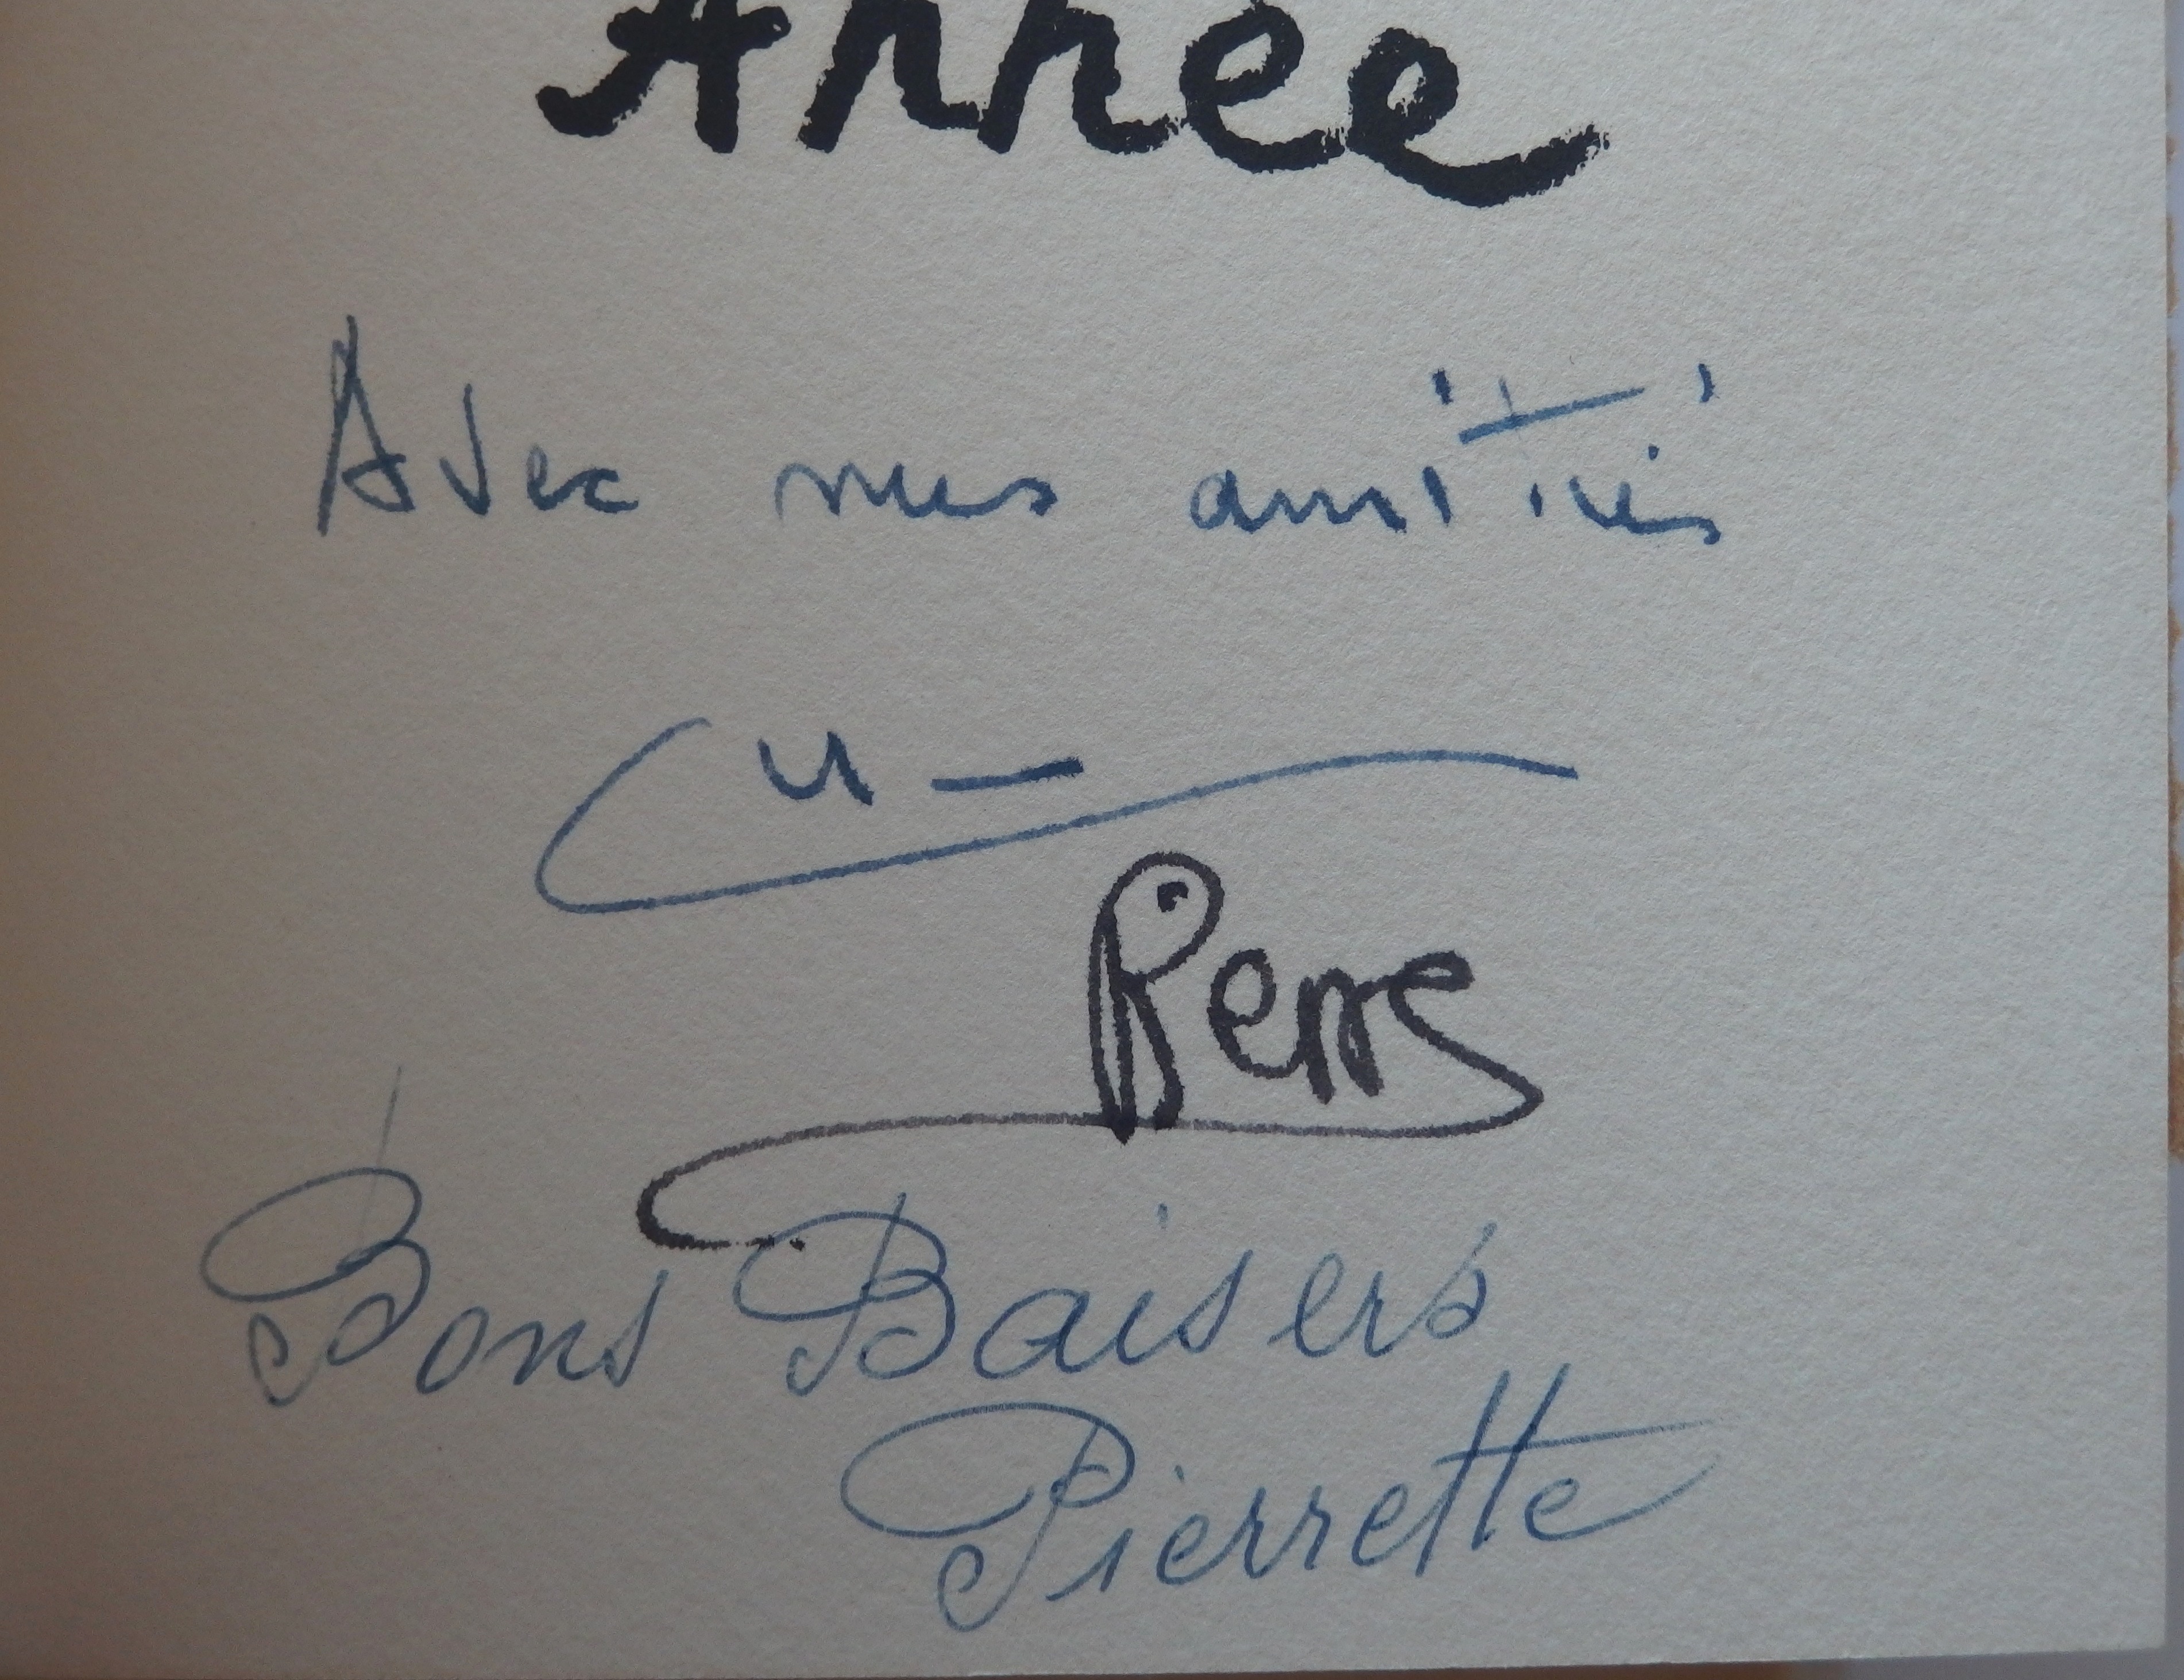 Année
Avec mes amitiés
Bons Baisers
Pierrette